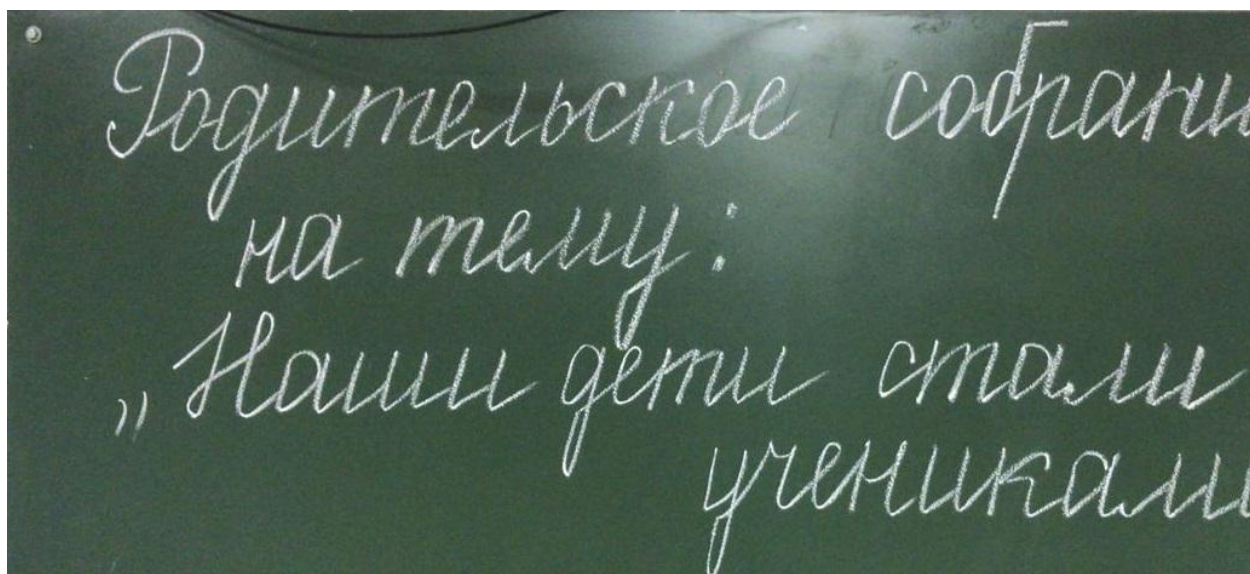 Родительское собрани
на тему:
„Наши дети стали
учениками